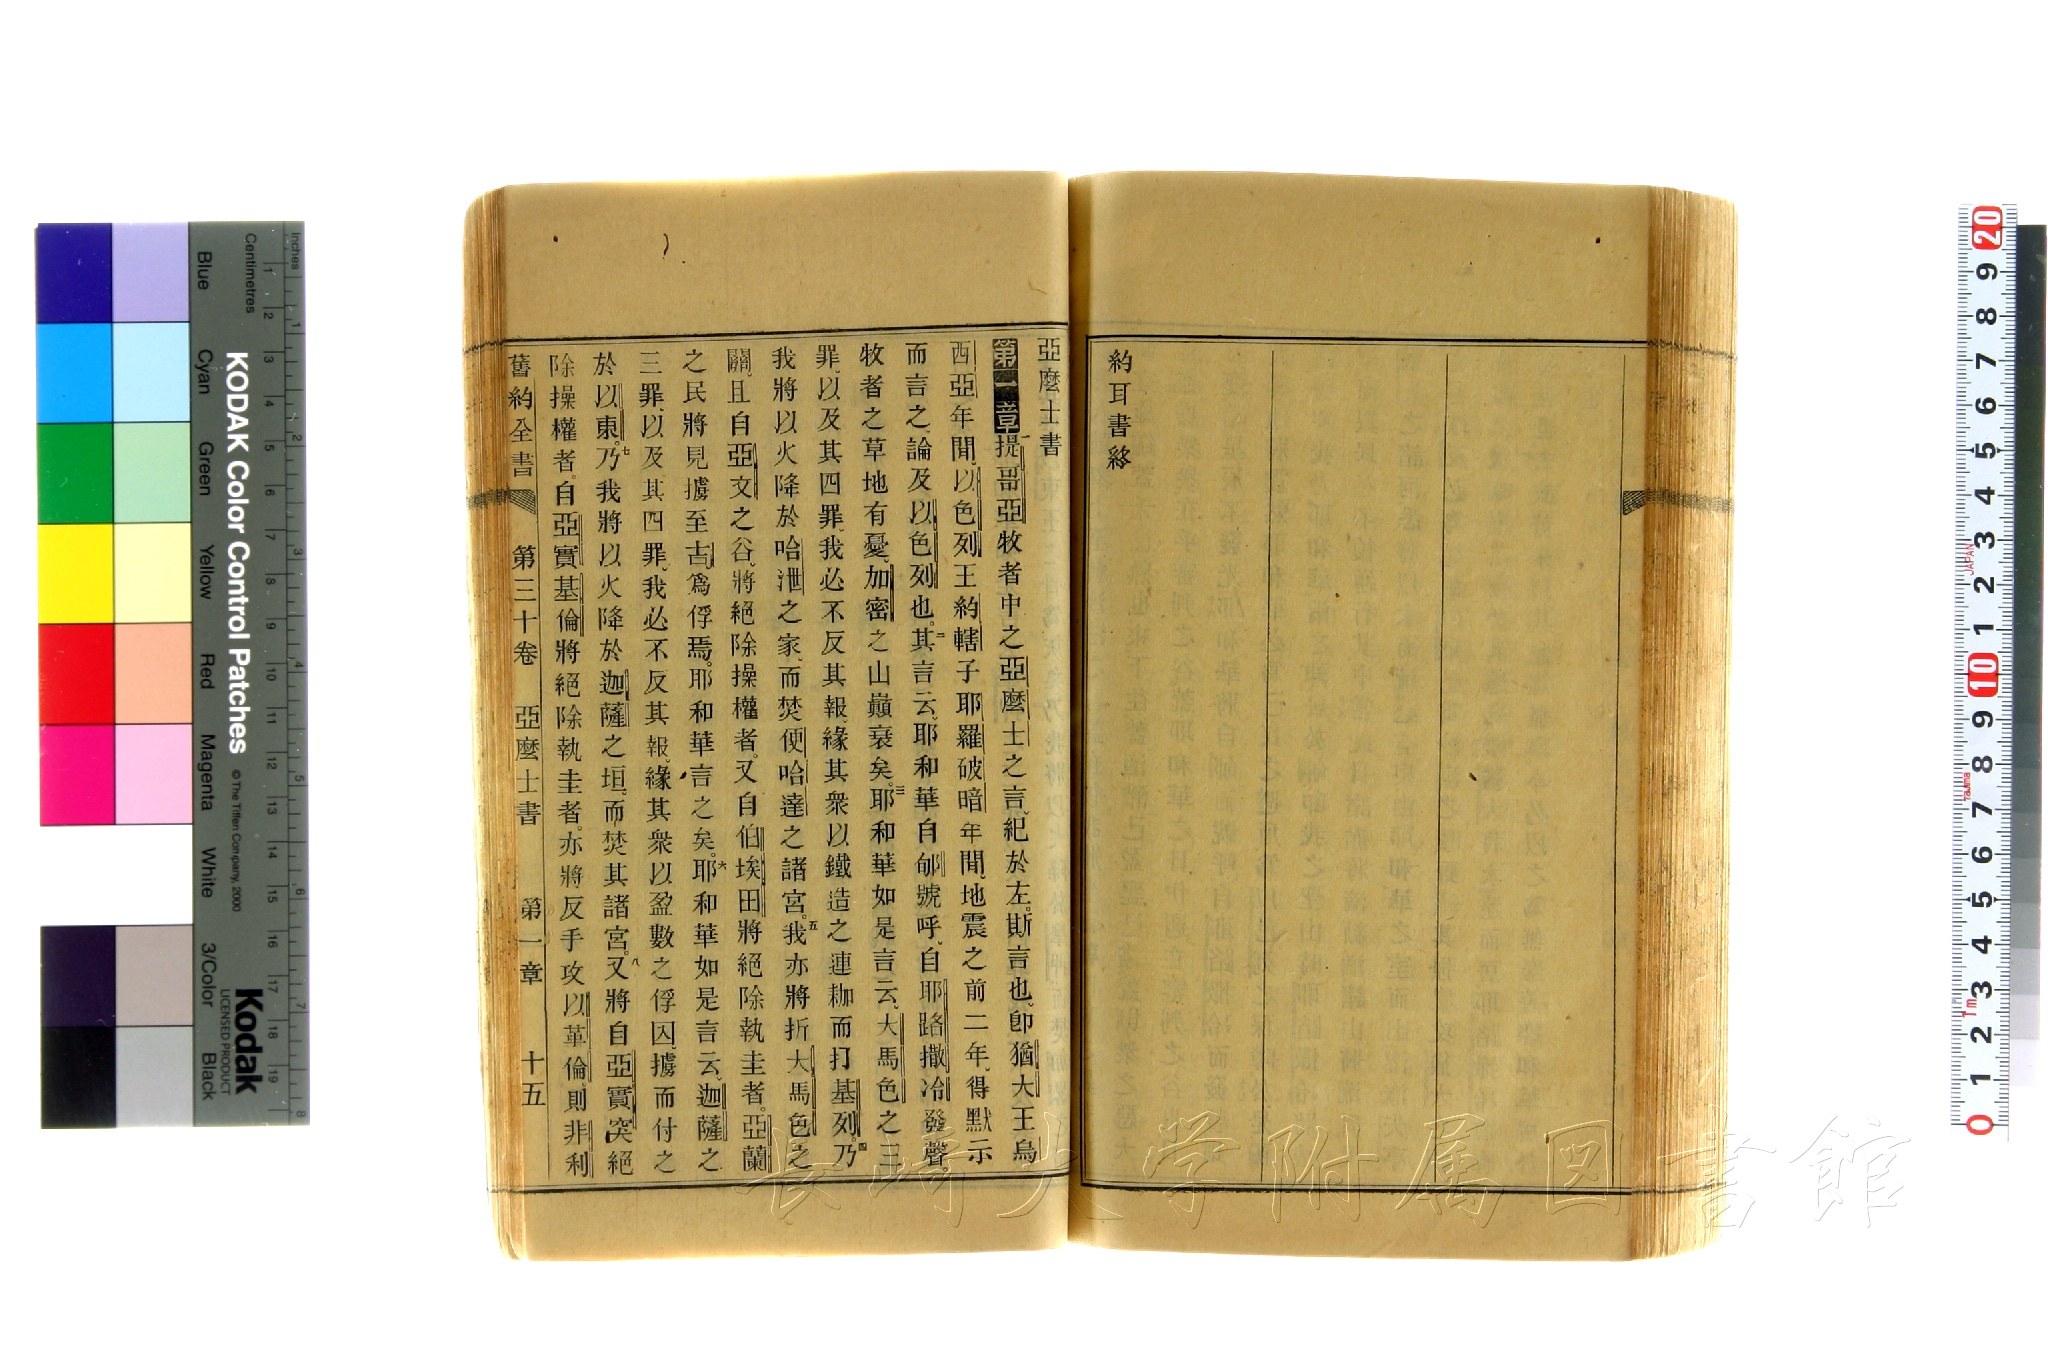 約耳書終
亞麼士書
第一章 一提哥亞牧者中之亞麼士之言、紀於左。斯言也、卽猶大王烏
西亞年間、以色列王約轄子耶羅破暗年間、地震之前二年、得默示
而言之、論及以色列也。二其言云、耶和華自郇號呼、自耶路撒冷發聲。
牧者之草地有憂、加密之山巔衰矣。三耶和華如是言云、大馬色之三
罪、以及其四罪、我必不反其報、緣其衆以鐵造之連耞而打基列。四乃
我將以火降於哈泄之家、而焚便哈達之諸宮。五我亦將折大馬色之
關、且自亞文之谷、將絕除操權者、又自伯埃田將絕除執圭者。亞蘭
之民將見擄至古、爲俘焉。耶和華言之矣。六耶和華如是言云、迦薩之
三罪、以及其四罪、我必不反其報、緣其衆以盈數之俘囚擄而付之
於以東。七乃我將以火降於迦薩之垣、而焚其諸宮。八又將自亞實突絕
除操權者、自亞實基倫將絕除執圭者、亦將反手攻以革倫、則非利
舊約全書 第三十卷 亞麼士書 第一章 十五
KODAK Color Control Patches
© The Tiffen Company, 2000
Kodak
LICENSED PRODUCT
Inches
Centimetres
Blue Cyan Green Yellow Red Magenta White 3/Color Black
長崎大学附属図書館
JAPAN
1m